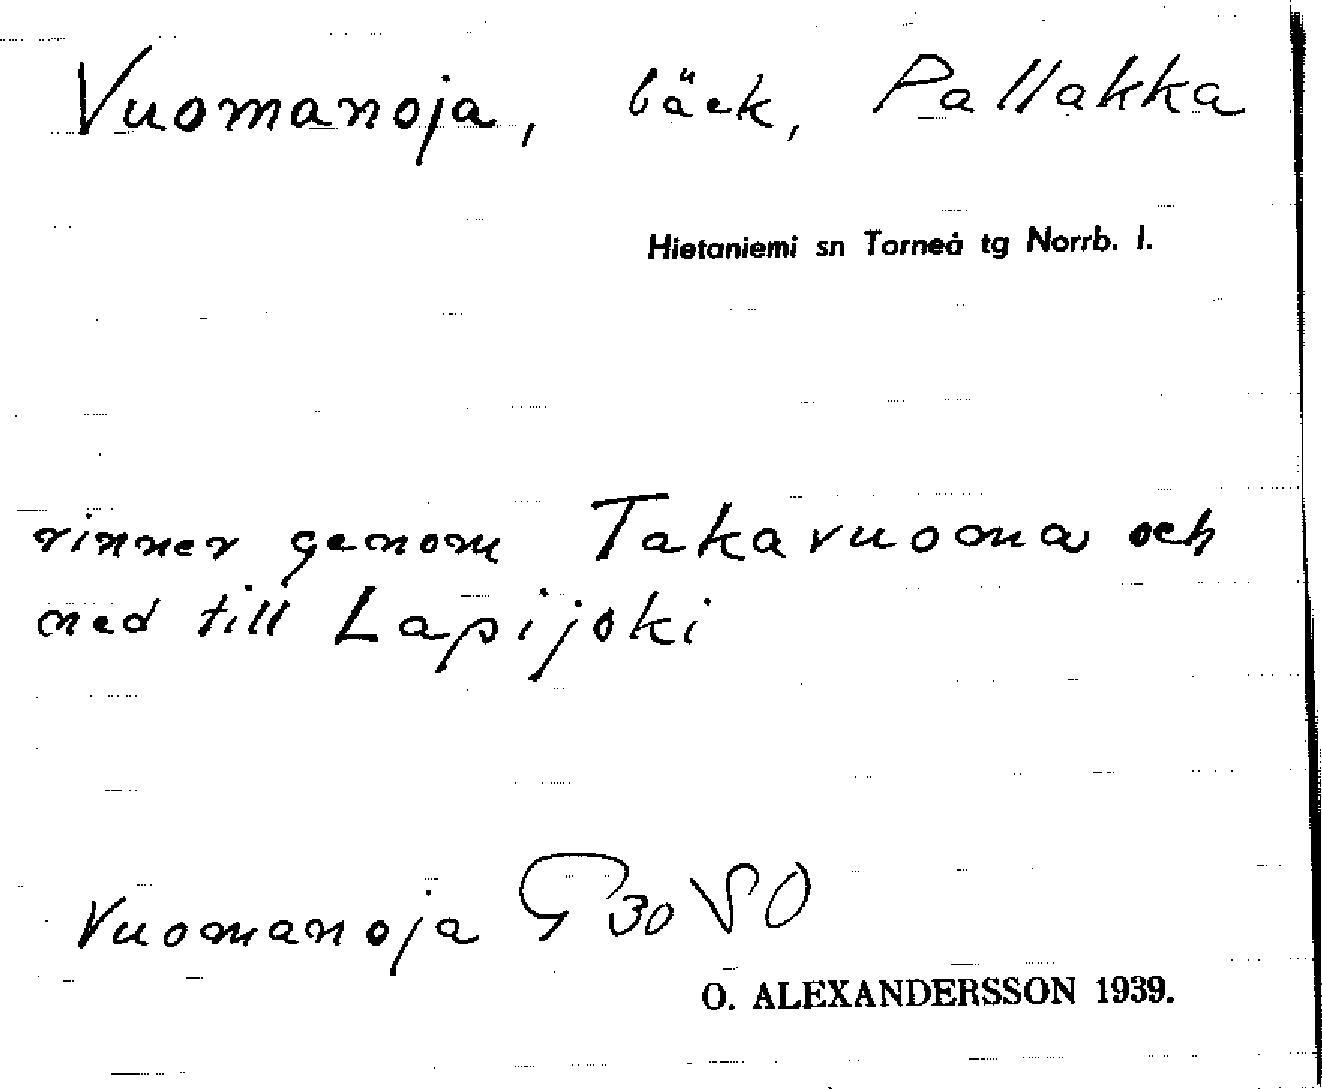 Vuomanoja, bäck, Pallakka
Hietaniemi sn Torneå tg Norrb. l.
rinner genom Takavuoma och
ned till Lapijoki
Vuomanoja G 30 SO
O. ALEXANDERSSON 1939.